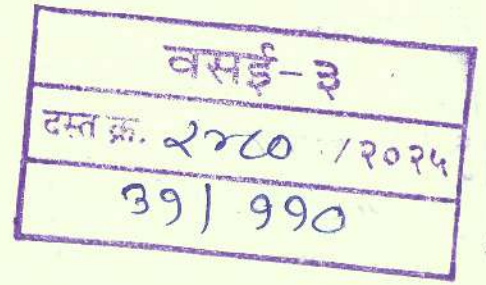 वसई-३
दस्त क्र. २४८० /२०२५
३१| ११०